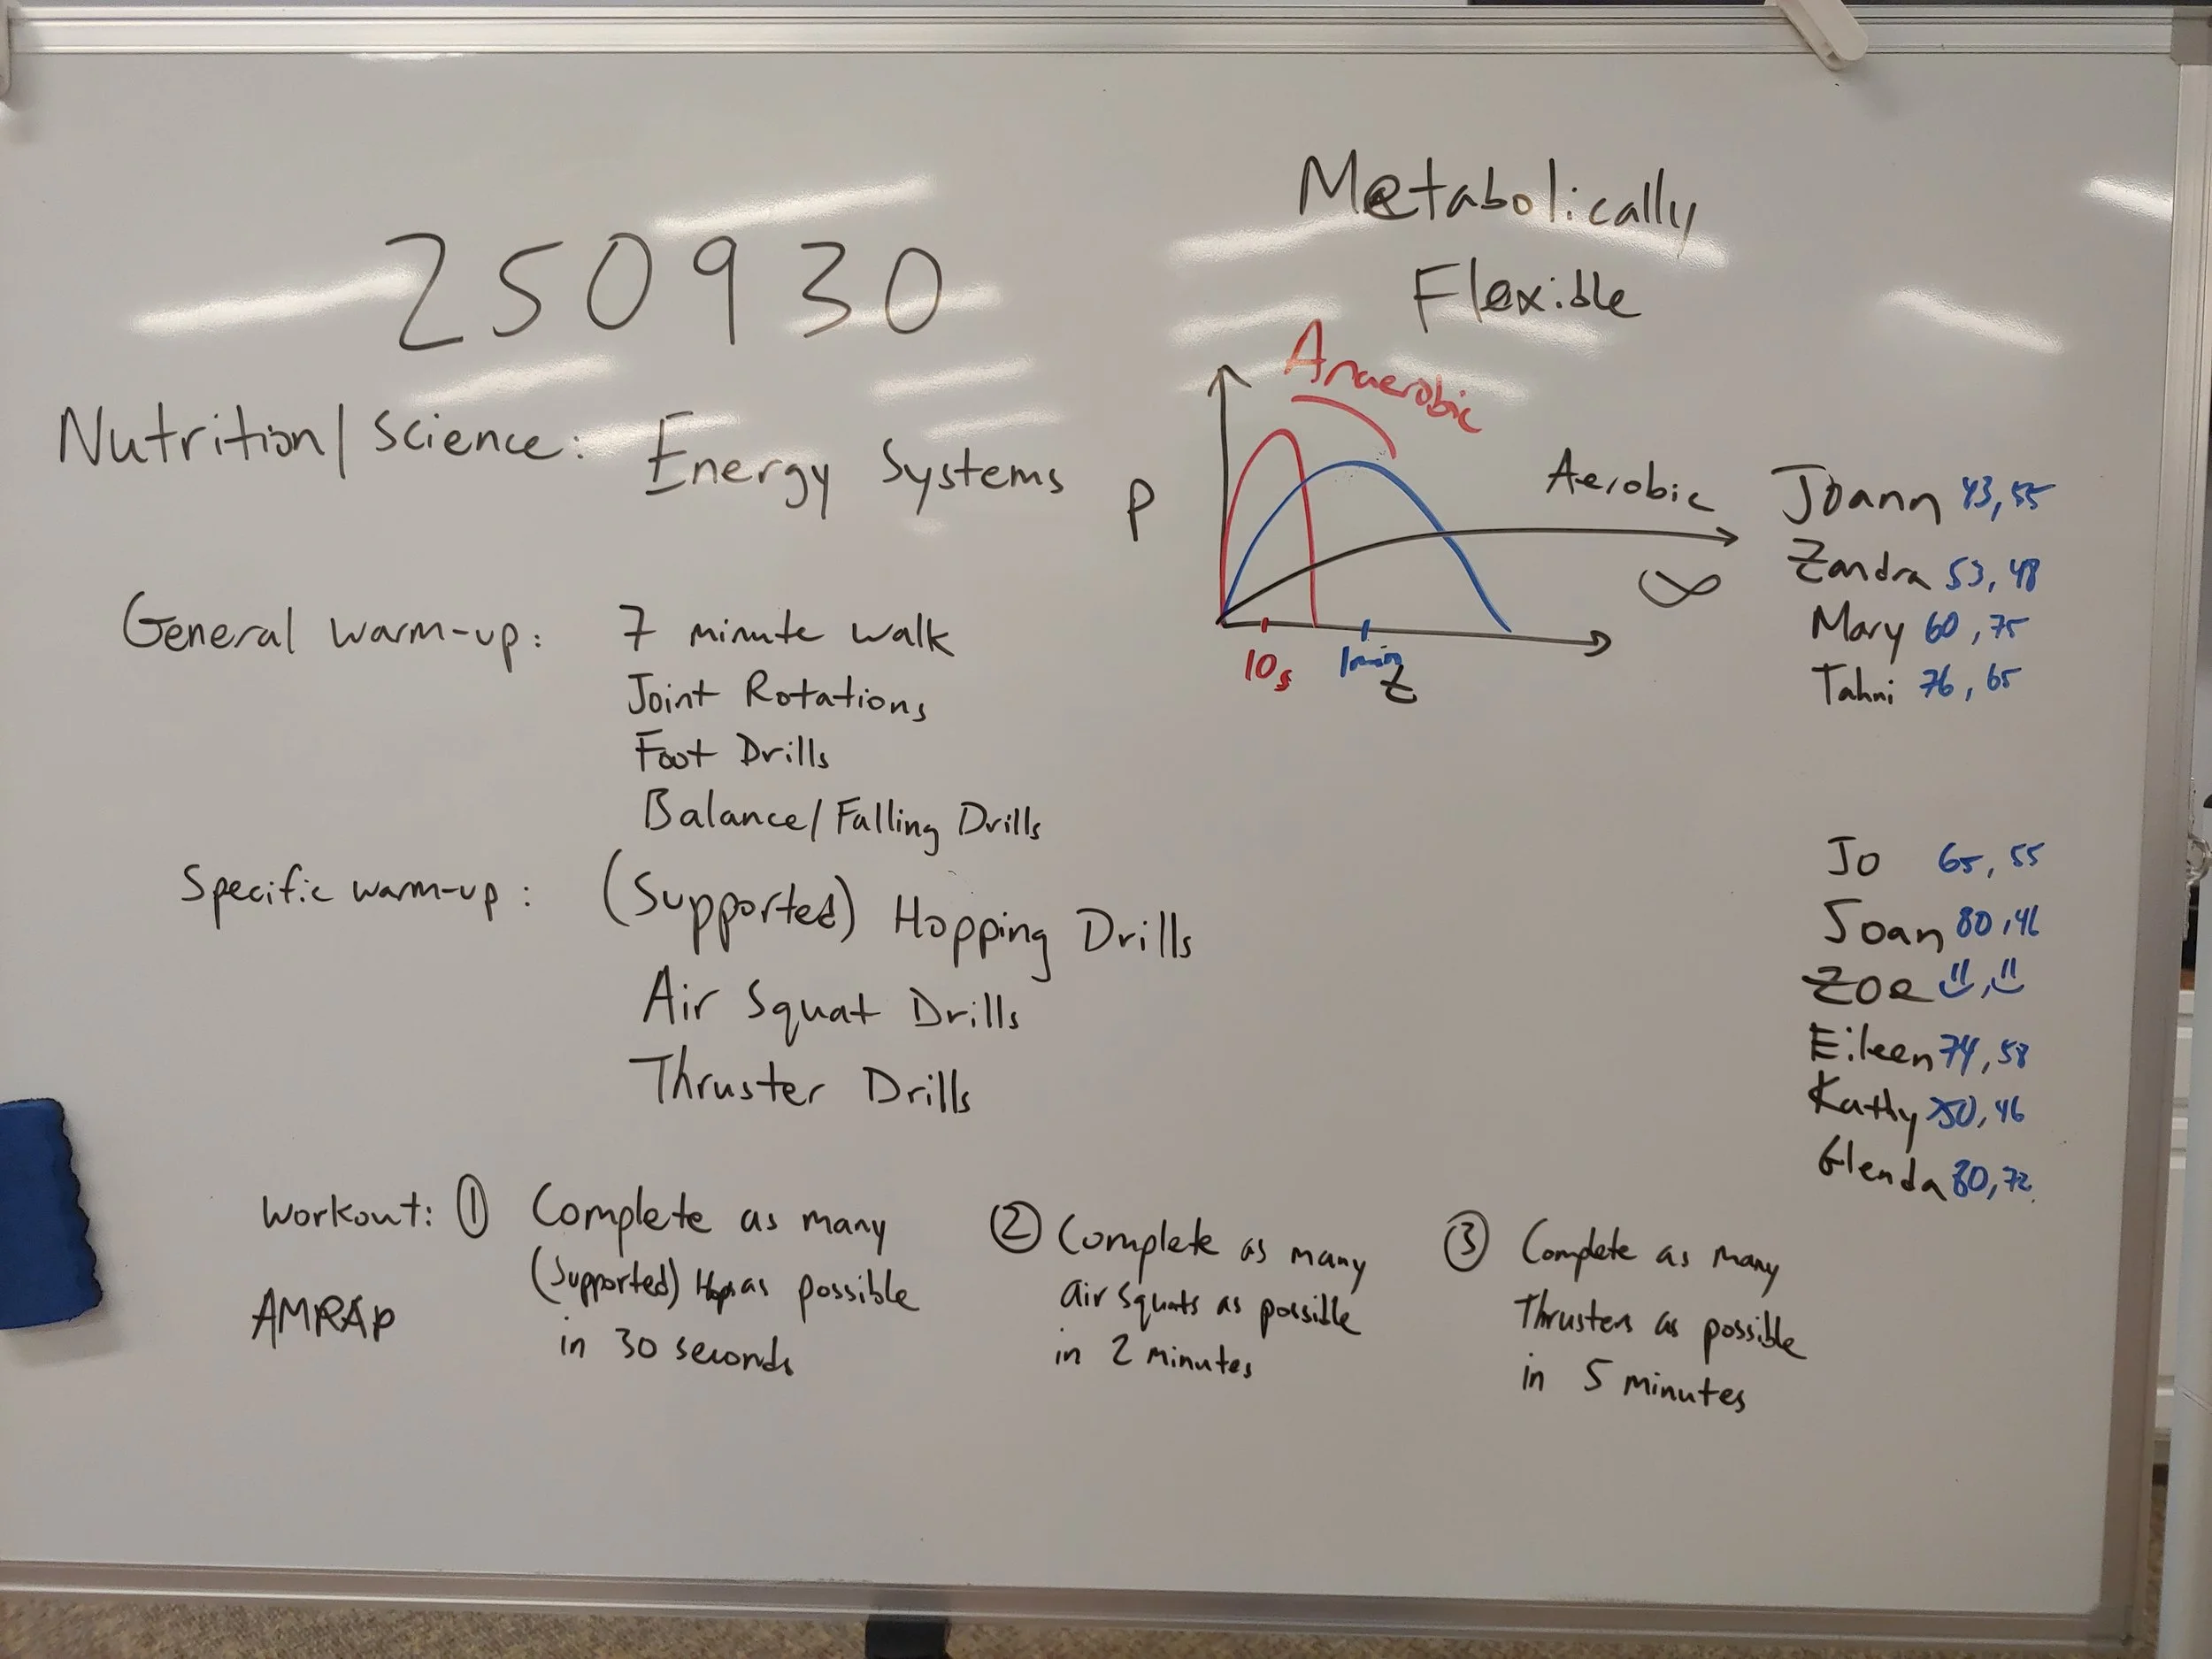 250930
Metabolically
Flexible
Nutrition/science: Energy Systems
Anaerobic
Aerobic
P
∞
10s
1min
General warm-up: 7 minute walk
Joint Rotations
Foot Drills
Balance/Falling Drills
Specific warm-up: (Supported) Hopping Drills
Air Squat Drills
Thruster Drills
Joann 43, 55
Zandra 53, 48
Mary 60, 75
Tahni 76, 65
Jo 65, 55
Joan 80, 46
Zoe
Eileen 74, 58
Kathy 50, 46
Glenda 80, 72
Workout: ① Complete as many
(Supported) Hops as possible
in 30 seconds
AMRAP
② Complete as many
air squats as possible
in 2 minutes
③ Complete as many
Thrusters as possible
in 5 minutes